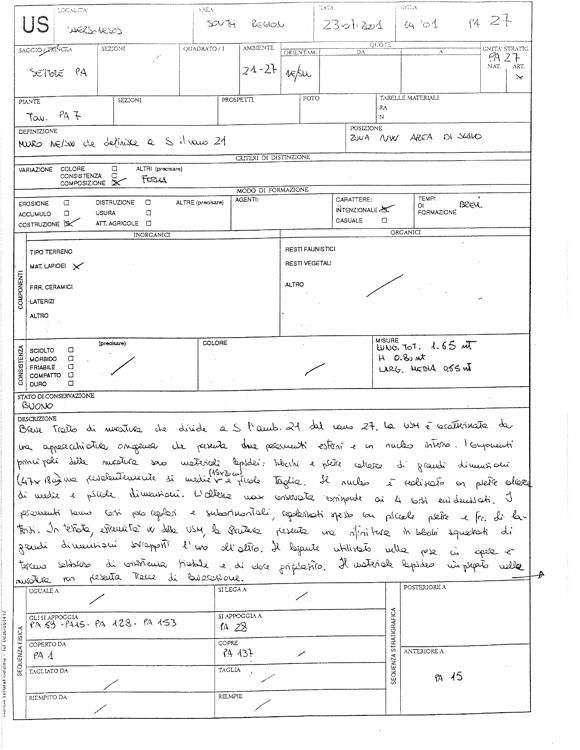 US
LOCALITA'
CHERSONESOS
AREA
SOUTH REGION
DATA
23-07-2001
SIGLA
CH '01
PA 27
SAGGIO/TRINCIA
SETTORE PA
SEZIONI
QUADRATO / I
AMBIENTE
21-27
QUOTE
ORIENTAM.
NE/SW
DA
A
UNITA' STRATIG.
PA 27
NAT. ART.
X
PIANTE
Tav. PA 7
SEZIONI
PROSPETTI
FOTO
TABELLE MATERIALI
RA
N
DEFINIZIONE
MURO NE/SW che definisce a S il vano 21
POSIZIONE
ZONA N/W AREA DI SCAVO
CRITERI DI DISTINZIONE
VARIAZIONE
COLORE
CONSISTENZA
COMPOSIZIONE X
ALTRI (precisare)
FORMA
MODO DI FORMAZIONE
EROSIONE
ACCUMULO
COSTRUZIONE X
DISTRUZIONE
USURA
ATT. AGRICOLE
ALTRE (precisare)
AGENTI:
CARATTERE:
INTENZIONALE X
CASUALE
TEMPI
DI
FORMAZIONE
BREVI
COMPONENTI
INORGANICI
TIPO TERRENO
MAT. LAPIDEI X
FRR. CERAMICI
LATERIZI
ALTRO
ORGANICI
RESTI FAUNISTICI
RESTI VEGETALI
ALTRO
CONSISTENZA
(precisare)
SCIOLTO
MORBIDO
FRIABILE
COMPATTO
DURO
COLORE
MISURE
LUNG. TOT. 1.65 mt
H 0.80 mt
LARG. MEDIA 0.55 mt
STATO DI CONSERVAZIONE
BUONO
DESCRIZIONE
Breve tratto di muratura che divide a S l'amb. 21 dal vano 27. La USM è caratterizzata da
una apparecchiatura omogenea che presenta due paramenti esterni e un nucleo interno. I componenti
principali della muratura sono materiali lapidei: blocchi e pietre calcaree di grandi dimensioni
ma prevalentemente di medie e piccole taglie. Il nucleo è realizzato con pietre calcaree
di medie e piccole dimensioni. L'altezza max conservata corrisponde ai 4 corsi evidenziati. I
paramenti hanno corsi più regolari e suborizzontali, regolarizzati spesso con piccole pietre e fr. di la-
terizi. In testata, estremità W della USM, la struttura presenta una rifinitura in blocchi squadrati di
grandi dimensioni sovrapposti l'uno all'altro. Il legante utilizzato nella posa in opera è
terreno sabbioso di consistenza friabile e di colore grigiastro. Il materiale lapideo impiegato nella
muratura non presenta tracce di lavorazione.
SEQUENZA FISICA
UGUALE A
SI LEGA A
GLI SI APPOGGIA
PA 59 - PA15 - PA 128 - PA 153
SI APPOGGIA A
PA 28
COPERTO DA
PA 1
COPRE
PA 137
TAGLIATO DA
TAGLIA
RIEMPITO DA
RIEMPIE
SEQUENZA STRATIGRAFICA
POSTERIORE A
ANTERIORE A
PA 15